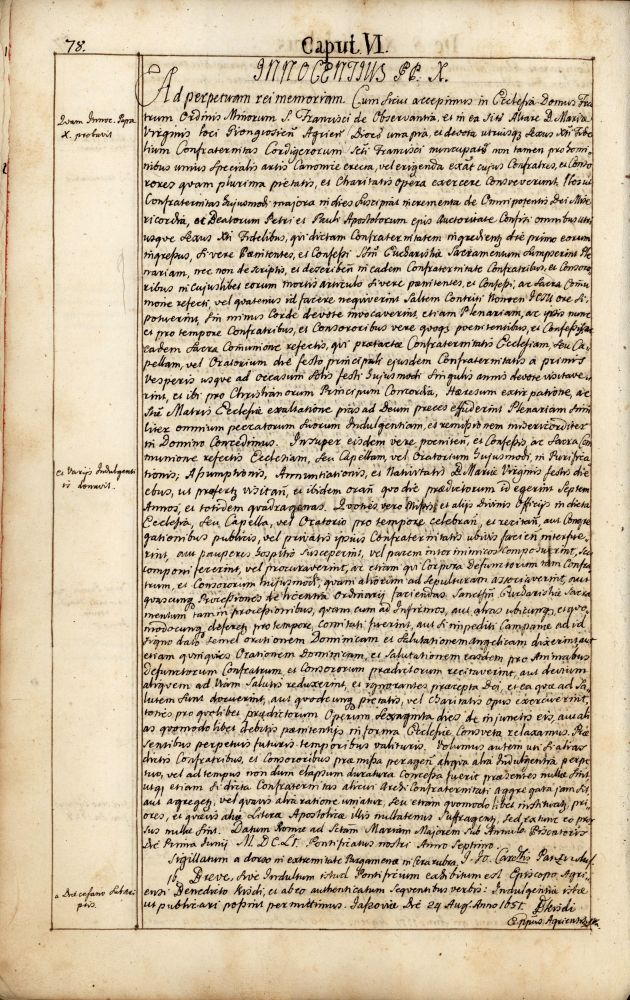 78.
Caput VI.
INNOCENTIUS PP. X.
Ad perpetuam rei memoriam. Cum sicut accepimus in Ecclesia Domus Fra
trum Ordinis Minorum S. Francisci de Observantia, et in ea sito Altare B. Mariæ
Quam Innoc. Papa
X. probavit
Virginis loci Giongiosien Agrien Dioec una pia, et devota utriusq sexus Xti Fide
lium Confraternitas Cordigerorum Scti Francisci nuncupata non tamen pro homi
nibus unius specialis artis Canonice erecta, vel erigenda exat cujus Confratres, et Conso
rores quam plurima pietatis, et Charitatis opera exercere consveverunt, Ut
Confraternitas hujusmodi majora in dies suscipiat incrementa de Omnipotentis Dei Mise
ricordia, ac Beatorum Petri et Pauli Apostolorum ejus Auctoritate Confisi omnibus utri
usque sexus Xti Fidelibus, qui dictam Confraternitatem ingredient die primo eorum
ingressus, si vere Pœnitentes, et Confessi SSm Eucharistiæ Sacramentum sumpserint Ple
nariam, nec non descriptis, et describen in eadem Confraternitate Confratribus, et Consoro
ribus in cujuslibet eorum mortis articulo si vere pœnitentes, et Confessi, ac Sacra Comu
nione refecti, vel quatenus id facere nequiverint saltem Contriti Nomen JESU ore si
potuerint, sin minus corde devote invocaverint, etiam Plenariam, ac ipsis nunc
et pro tempore Confratribus, et Consororibus vere quoq pœnitentibus, et Confessis, ac
eadem Sacra Comunione refectis, qui prætactæ Confraternitatis Ecclesiam, seu Ca
pellam, vel Oratorium die festo principali ejusdem Confraternitatis a primis
vesperis usque ad occasum Solis festi hujusmodi singulis annis devote visitave
rint, et ibi pro Christianorum Principum Concordia, Hæresum extirpatione, ac
Stæ Matris Ecclesiæ exaltatione pias ad Deum preces effuderint Plenariam simi
liter omnium peccatorum suorum Indulgentiam, et remissionem misericorditer
in Domino Concedimus. Insuper eisdem vere pœniten, et Confessis, ac Sacra Com
et Varijs Indulgenti
is donavit.
munione refectis Ecclesiam, seu Capellam, vel Oratorium hujusmodi, in Purifica
tionis; Assumptionis, Annuntiationis, et Nativitatis B. Mariæ Virginis festis die
ebus, ut præfertur visitan, et ibidem oran quo die prædictorum id egerint Septem
Annos, et totidem quadragenas. Quoties vero Missis, et alijs Divinis Officijs in dicta
Ecclesia, seu Capella, vel Oratorio pro tempore celebran, et recitan, aut Congre
gationibus publicis, vel privatis ipsius Confraternitatis ubivis facien interfue
rint, aut pauperes hospitio susceperint, vel pacem inter inimicos composuerint, seu
componi fecerint, vel procuraverint, ac etiam qui Corpora defunctorum tam Confra
trum, et Consororum hujusmodi, quam aliorum ad sepulturam associaverint, aut
quascunq Processiones de licentia Ordinarij faciendas Sanctissm Eucharistiæ Sacra
mentum tam in processionibus, quam cum ad Infirmos, aut alias ubicunq, et quo
modocunq deferet, pro tempore, comitati fuerint, aut si impediti Campanæ ad id
signo dato semel orationem Dominicam et Salutationem angelicam dixerint, aut
etiam quinquies Orationem Dominicam, et Salutationem easdem pro Animabus
defunctorum Confratrum, et Consororum prædictorum recitaverint, aut devium
aliquem ad viam Salutis reduxerint, et ignorantes præcepta Dei, et ea quæ ad Sa
lutem sunt docuerint, aut quodcunq pietatis, vel Charitatis opus exercuerint,
toties pro quolibet prædictorum Operum sexaginta dies de injunctis eis, aut ali
as quomodolibet debitis pœnitentijs in forma Ecclesiæ Consveta relaxamus. Præ
sentibus perpetuis futuris temporibus valituris. Volumus autem ut si alias
dictis Confratribus, et Consororibus præmissa peragen aliqua alia Indulgentia perpe
tuo, vel ad tempus non dum elapsum duratura concessa fuerit præsentes nullæ sint
utq etiam si dicta Confraternitas alicui Archi Confraternitati aggregata jam sit,
aut aggregetur, vel quavis alia ratione uniatur, seu etiam quomodolibet instituatur, pri
ores, et quævis aliæ Literæ Apostolicæ illis nullatenus suffragentur, sed ex tunc eo ipso
sus nullæ sint. Datum Romæ ad Sctam Mariam Majorem sub Annulo Piscatoris
Die Prima Junij M.DC.LI. Pontificatus nostri Anno Septimo.
Sigillatum a dorso in extremitate Pargamenæ in cera rubra,
16. Breve, sive Indultum istud Pontificium exhibitum est Episcopo Agri
ensi Benedicto Kisdi, et ab eo authenticatum sequentibus verbis: Indulgentiæ istæ
a Diœcesano subscri
ptis.
ut publicari possint permittimus. Jaszoviæ Die 24 Aug. Anno 1651. B. Kisdi
Eppus Agriensis